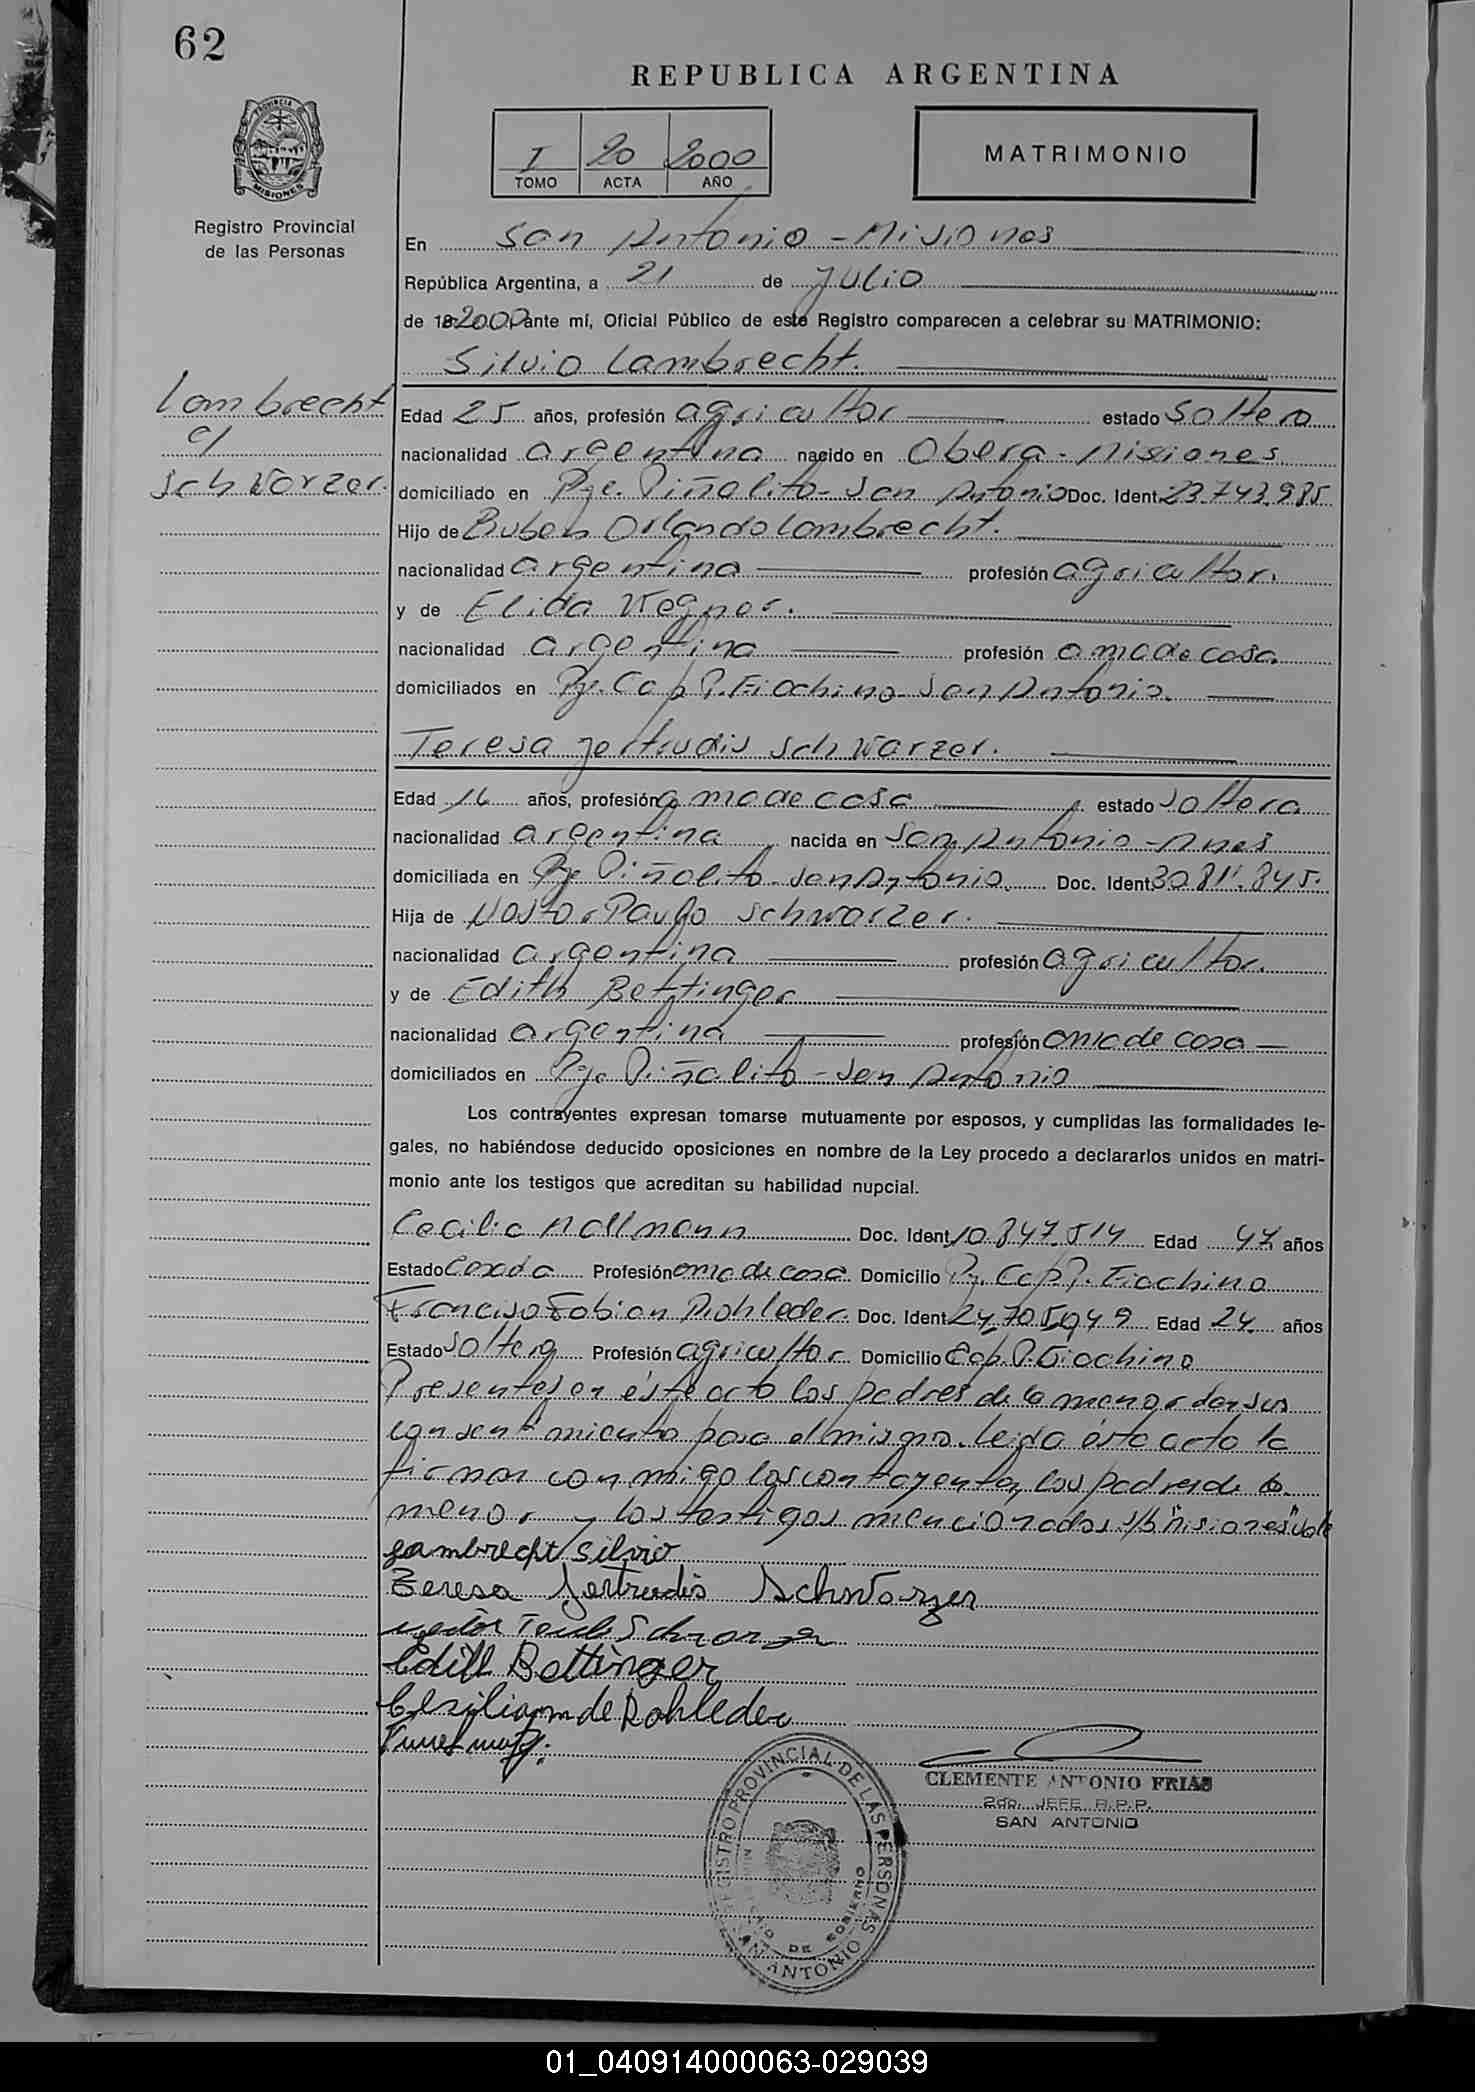 62
REPUBLICA ARGENTINA
PROVINCIA
MISIONES
I 20 2000
TOMO ACTA AÑO
MATRIMONIO
Registro Provincial
de las Personas
En San Antonio - Misiones
República Argentina, a 21 de Julio
de 2000, ante mí, Oficial Público de este Registro comparecen a celebrar su MATRIMONIO:
Silvio Lambrecht.
Lambrecht
c/
Schwarzer.
Edad 25 años, profesión agricultor estado Soltero
nacionalidad argentina nacido en Obera - Misiones
domiciliado en Pje. Piñalito - San Antonio Doc. Ident. 23.743.985
Hijo de Ruben Orlando Lambrecht.
nacionalidad argentina profesión agricultor.
y de Elida Wegner.
nacionalidad argentina profesión ama de casa.
domiciliados en Pje. Cap P. Fiachino - San Antonio.
Teresa Gertrudis Schwarzer.
Edad 16 años, profesión ama de casa estado Soltera
nacionalidad argentina nacida en San Antonio - Mnes
domiciliada en Pje Piñalito - San Antonio. Doc. Ident. 30.811.845.
Hija de Nestor Paulo Schwarzer.
nacionalidad argentina profesión agricultor.
y de Edith Bettinger
nacionalidad argentina profesión ama de casa
domiciliados en Pje Piñalito - San Antonio
Los contrayentes expresan tomarse mutuamente por esposos, y cumplidas las formalidades le-
gales, no habiéndose deducido oposiciones en nombre de la Ley procedo a declararlos unidos en matri-
monio ante los testigos que acreditan su habilidad nupcial.
Cecilia Mallmann Doc. Ident. 10.847.514 Edad 47 años
Estado Casada Profesión ama de casa. Domicilio Pj. Cap P. Fiachino
Francisco Fabian Rohleder. Doc. Ident. 24.705.949 Edad 24 años
Estado Soltero Profesión agricultor Domicilio Cap. P. Giachino
Presentes en éste acto los padres de la menor dan sus
consentimiento para el mismo. Leida ésta acta la
firman conmigo los contrayentes, los padres de la
menor y los testigos mencionados s/b "Misiones" vale
Lambrecht Silvio
Teresa Gertrudis Schwarzer
Nestor Paulo Schwarzer
Edith Bettinger
Cesilia m de Rohleder
CLEMENTE ANTONIO FRIAS
2do. JEFE R.P.P.
SAN ANTONIO
REGISTRO PROVINCIAL DE LAS PERSONAS
SAN ANTONIO
DE GOBIERNO
01_040914000063-029039